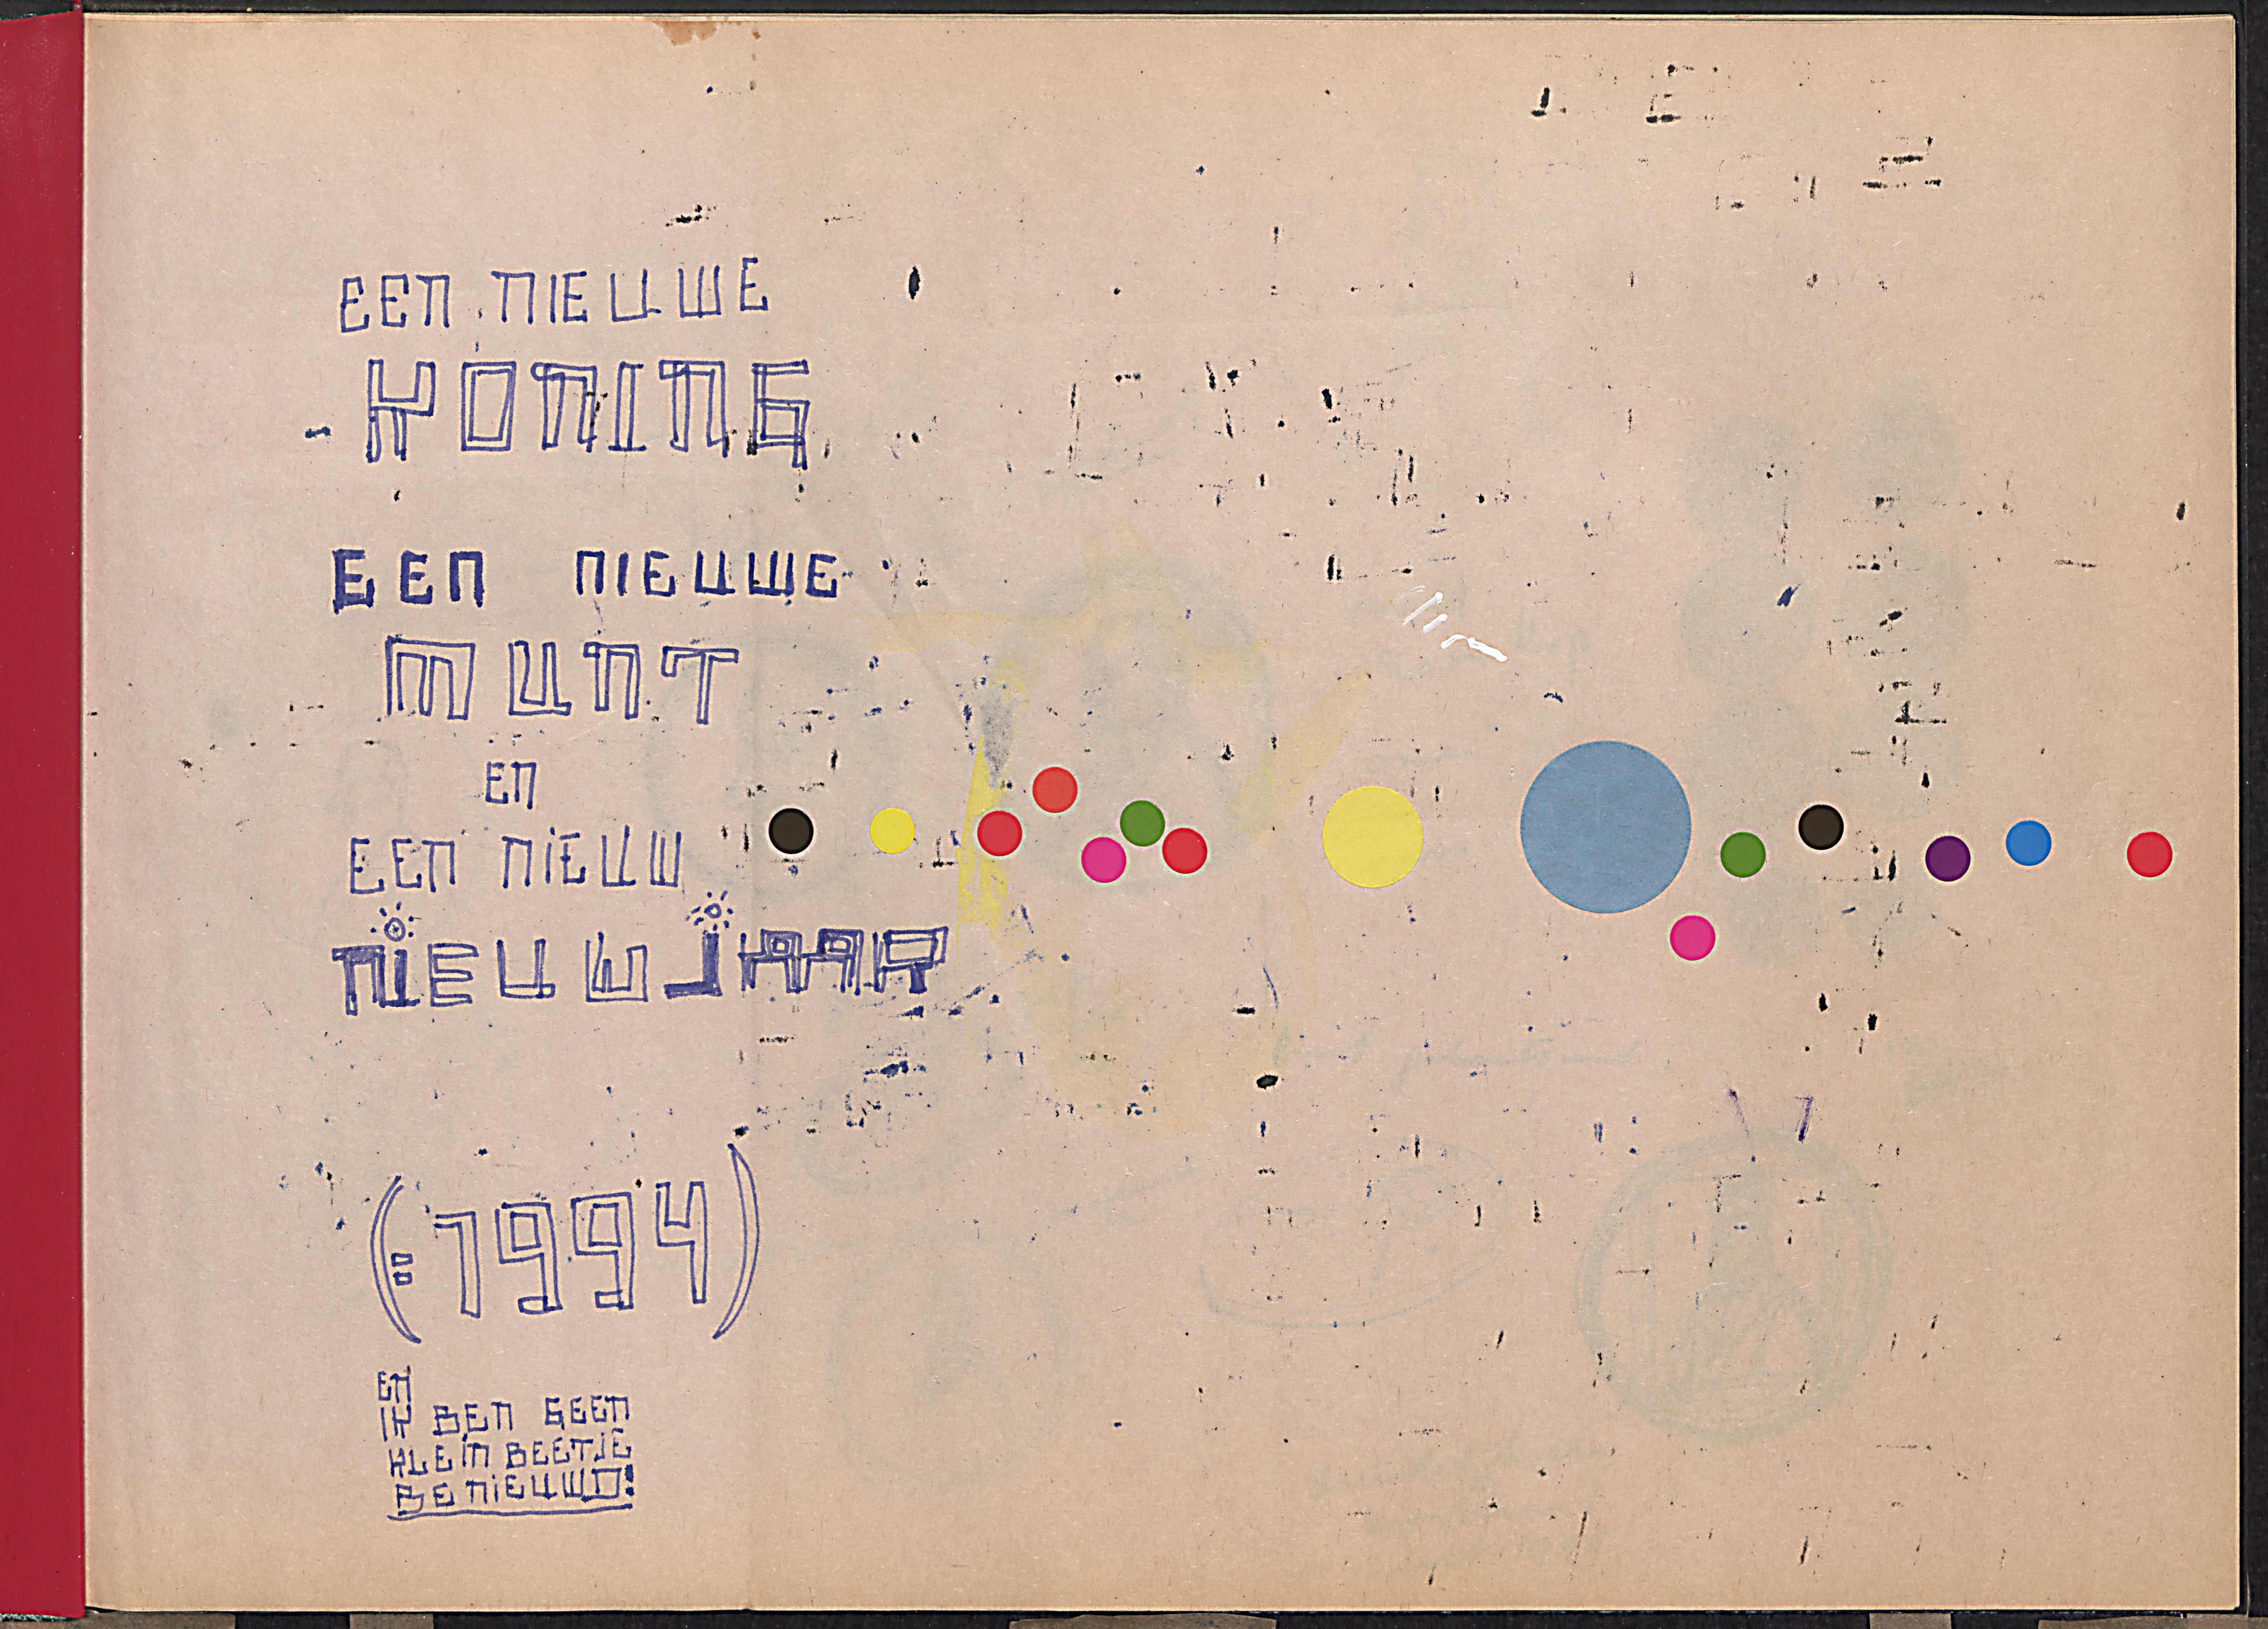 EEN NIEUWE
KONING
EEN NIEUWE
MUNT
EN
EEN NiEUW
NiEUWJAAR
(:1994)
EN
IK BEN GEEN
KLEiN BEETJE
BENiEUWD!